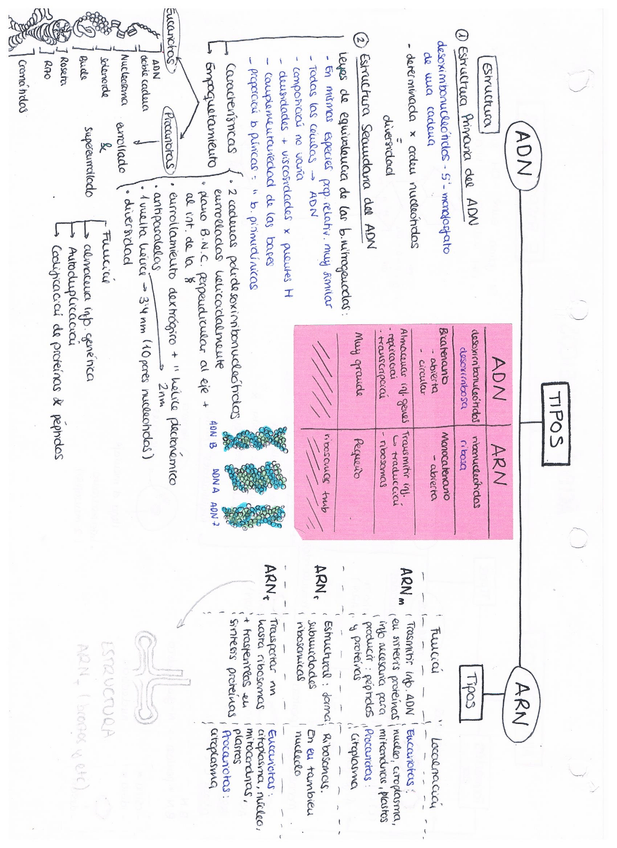 TIPOS
ADN
ARN
Estructura
① Estructura Primaria del ADN
desoxirribonucleótidos · 5'-monofosfato
de una cadena
- determinada x orden nucleótidos
diversidad
② Estructura Secundaria del ADN
Leyes de equivalencia de las b. nitrogenadas:
- En mismas especies prop. relativ. muy similar
- Todas las células → ADN
- composición no varía
- densidades + viscosidades x puentes H
- complementariedad de las bases
- proporción b púricas = " b. pirimidínicas
Características
Empaquetamiento
• 2 cadenas polidesoxirribonucleótidos
enrolladas helicoidalmente
• plano B.N.C. perpendicular al eje +
al int. de la
• enrollamiento dextrógiro + " hélice plectonémico
• antiparalelas → 2nm
• 1 vuelta hélice → 3'4 nm (10 pares nucleótidos)
• diversidad
Eucariotas
Procariotas
ADN
doble cadena
Nucleosoma
Solenoide
Bucle
Roseta
Rizo
Cromátidas
enrollado
&
superenrollado
Función
almacena info genética
Autoduplicación
Codificación de proteínas & péptidos
ADN ARN
desoxirribonucleótidos
desoxirribosa
ribonucleótidos
ribosa
Bicatenario
- abierta
- circular
Monocatenario
- abierta
Almacena inf. genes
- replicación
- transcripción
Transmitir inf.
↳ traducción
- ribosomas
Muy grande
Pequeño
ADN B
ADN A
ADN Z
Tipos
Función
Localización
ARNm
Trasmitir info. ADN
en síntesis proteínas
info necesaria para
producir: péptidos
y proteínas
Eucariotas:
núcleo, citoplasma,
mitocondrias, plastos
Procariotas:
citoplasma
ARNr
Estructural: forma
subunidades
ribosómicas
Ribosomas.
En eu también
nucleolo
ARNt
Transportar aa
hasta ribosomas
síntesis proteínas
Eucariotas:
citoplasma, núcleo,
mitocondrias,
plastos
Procariotas:
citoplasma
ESTRUCTURA
ARNt